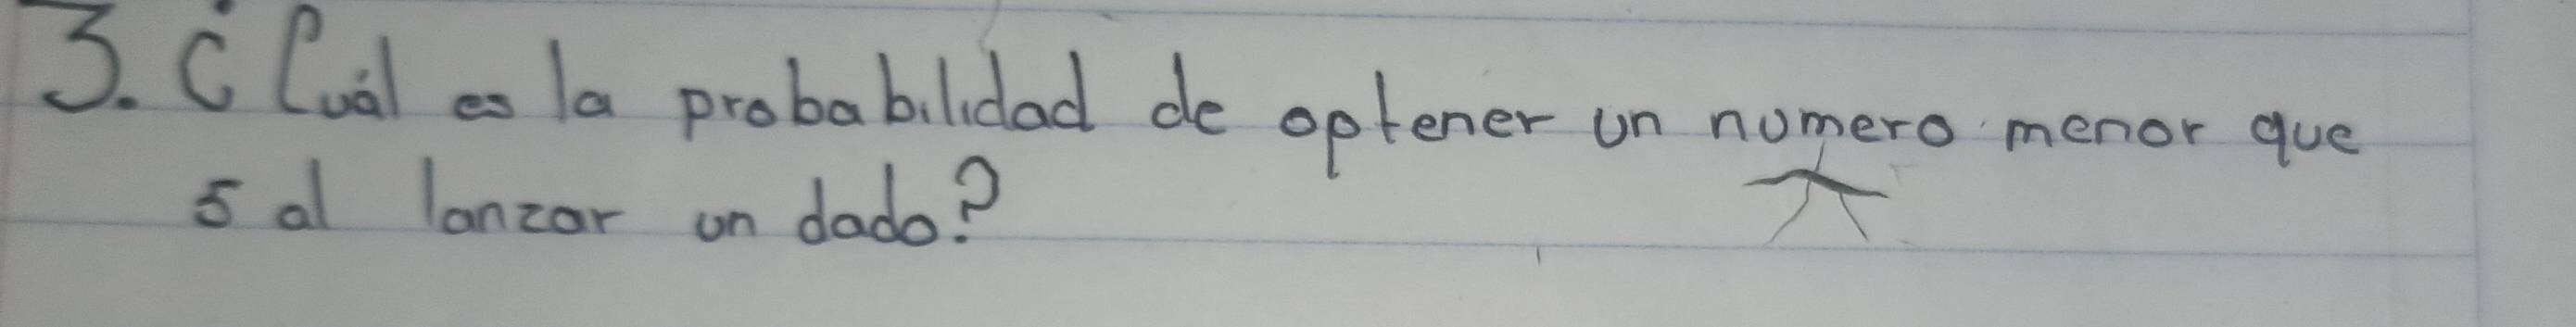 3. ¿Cuál es la probabilidad de optener un numero menor que
5 al lanzar un dado?